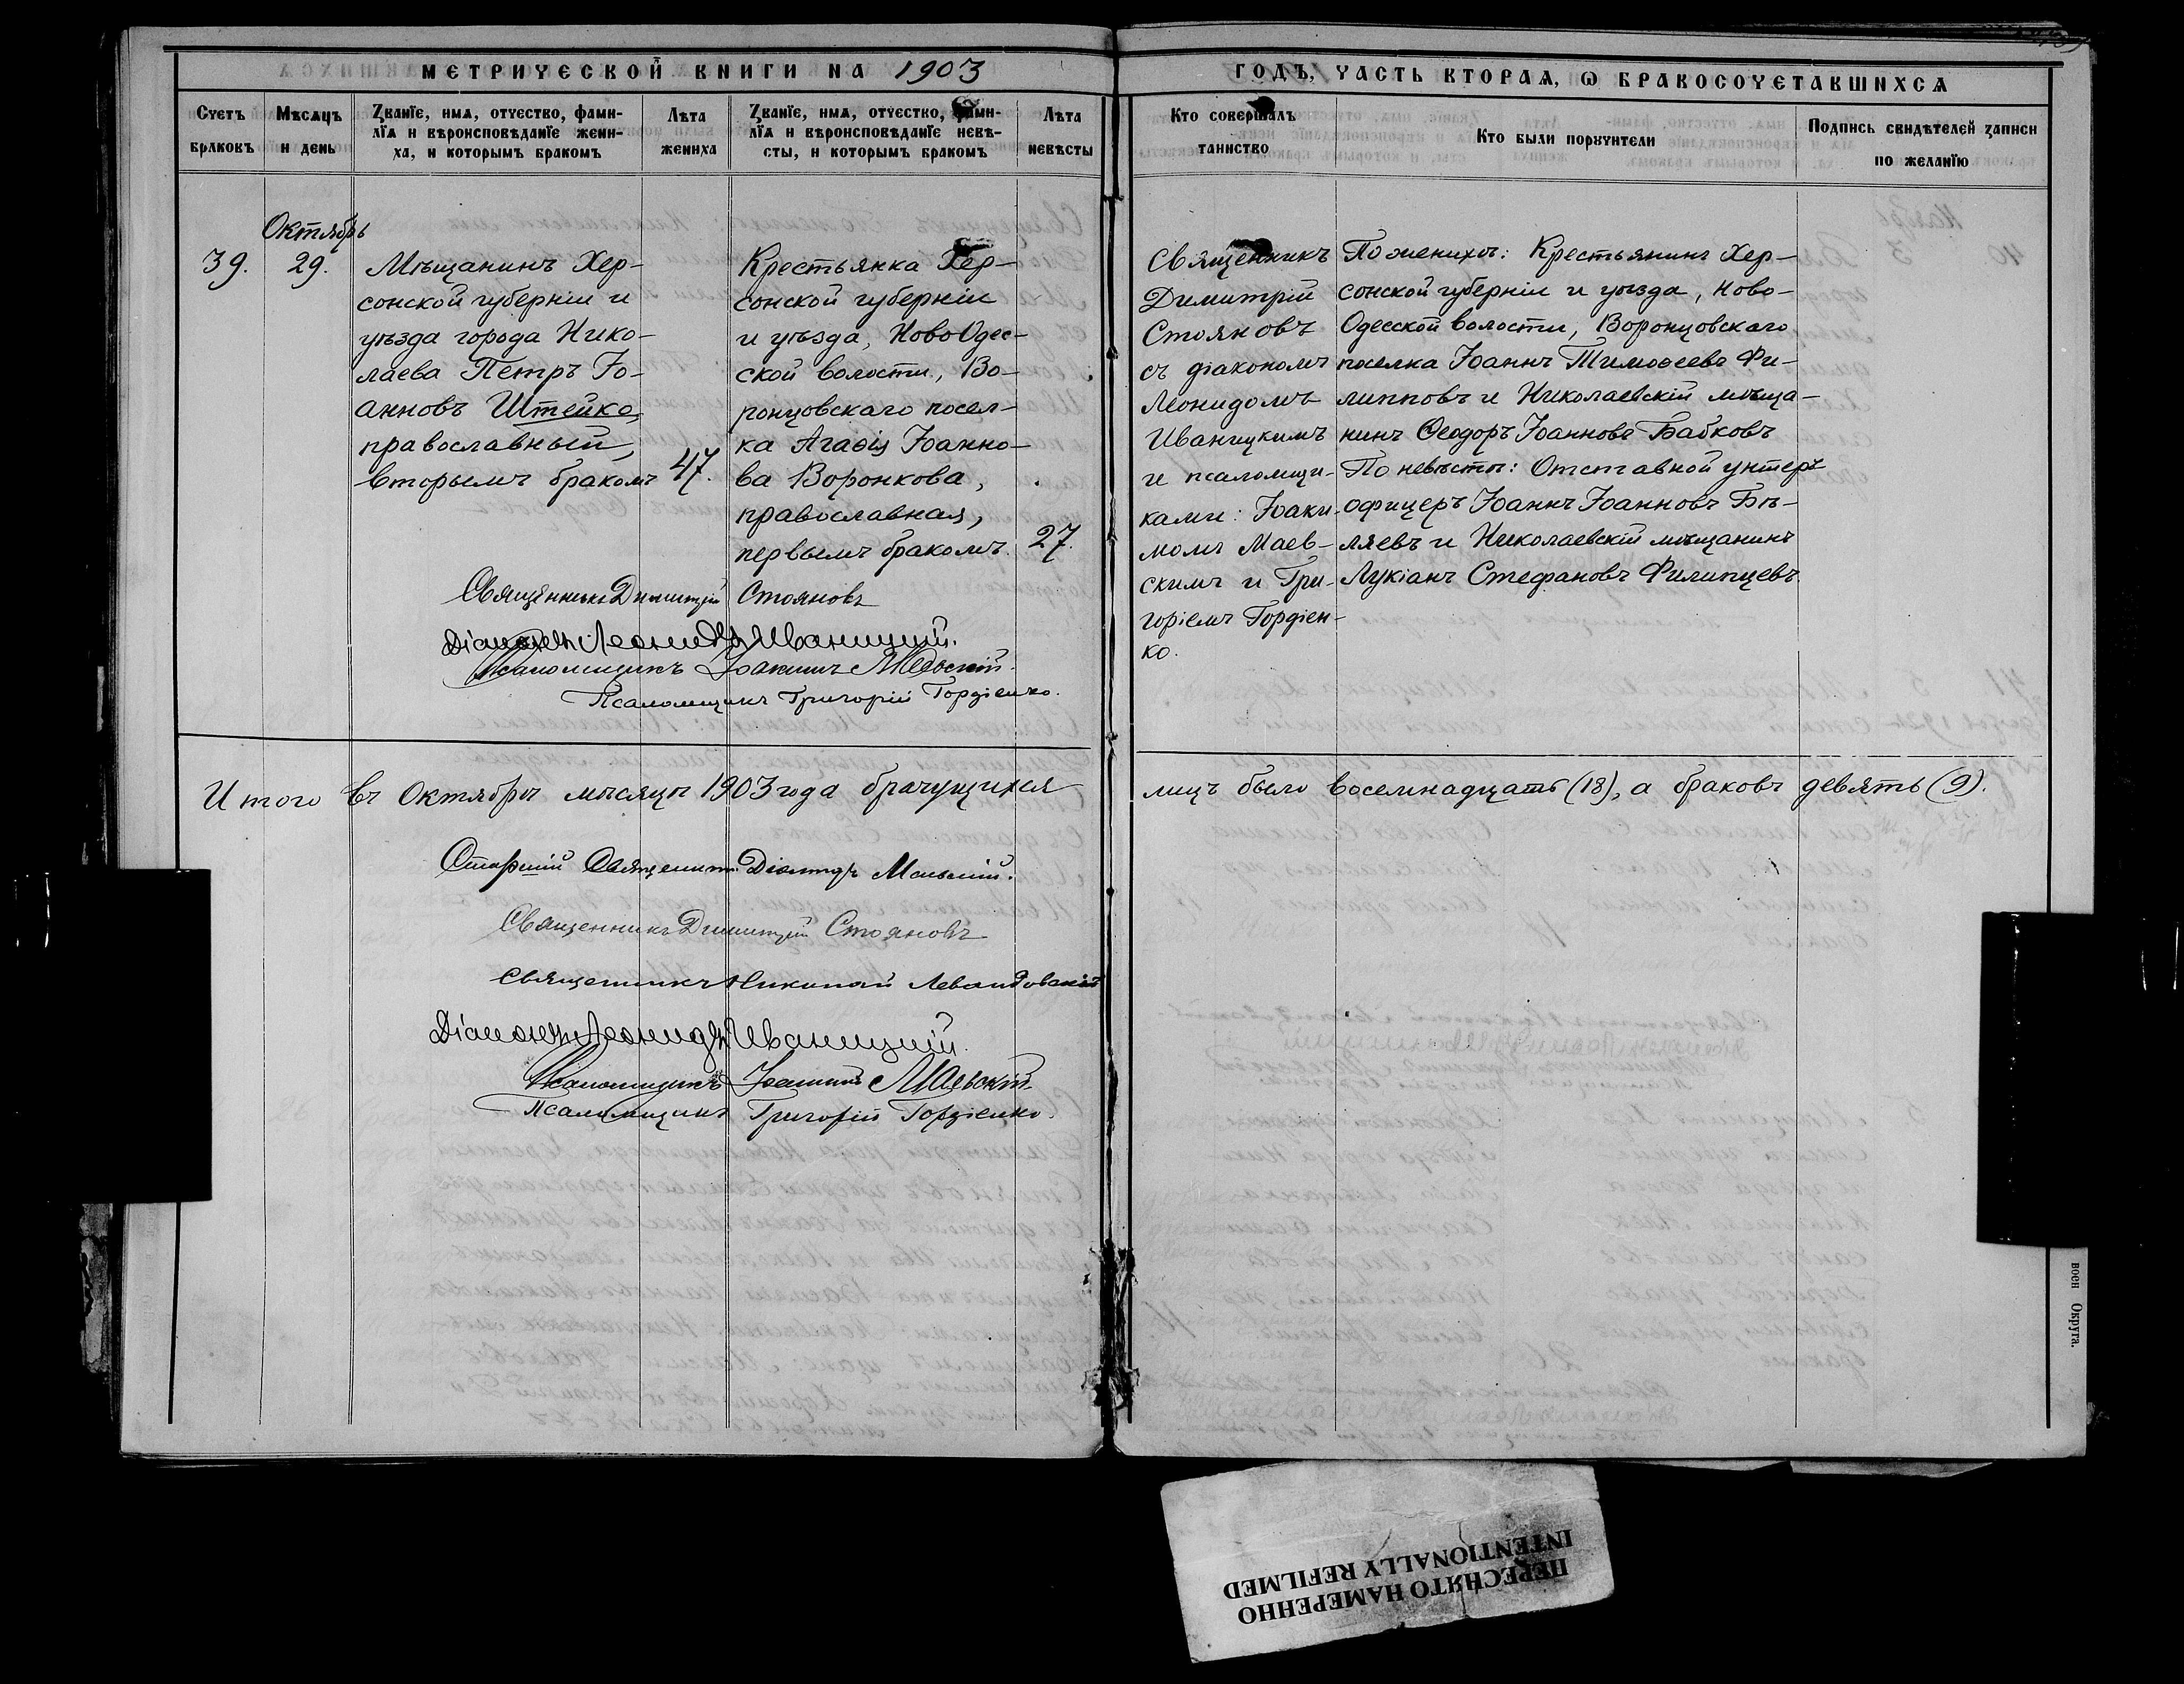 МЕТРИЧЕСКОЙ КНИГИ НА 1903
ГОДЪ, ЧАСТЬ ВТОРАѦ, Ѡ БРАКОСОЧЕТАВШИХСѦ
Счетъ браковъ
Мѣсѧцъ и день
Званїе, имѧ, отчество, фами-
лїѧ и вѣроисповѣданїе жени-
ха, и которымъ бракомъ
Лѣта жениха
Званїе, имѧ, отчество, фами-
лїѧ и вѣроисповѣданїе невѣ-
сты, и которымъ бракомъ
Лѣта невѣсты
Кто совершалъ
таинство
Кто были порꙋчители
Подпись свидѣтелей записи
по желанїю
Октябрь
39.
29.
Мѣщанинъ Хер-
сонской губерніи и
уѣзда города Нико-
лаева Петръ Іо-
анновъ Штейко,
православный,
вторымъ бракомъ
47.
Крестьянка Хер-
сонской губерніи
и уѣзда, Ново Одес-
ской волости, Во-
ронцовскаго посел-
ка Агаѳія Іоанно-
ва Воронкова,
православная,
первымъ бракомъ.
27.
Священникъ
Димитрій
Стояновъ
съ діакономъ
Леонидомъ
Иваницкимъ
и псаломщи-
ками: Іоаки-
момъ Маев-
скимъ и Гри-
горіемъ Гордіен-
ко.
По женихѣ: Крестьянинъ Хер-
сонской губерніи и уѣзда, Ново-
Одесской волости, Воронцовскаго
поселка Іоаннъ Тимоѳеевъ Фи-
липповъ и Николаевскій мѣща-
нинъ Ѳеодоръ Іоанновъ Бабковъ
По невѣстѣ: Отставной унтеръ
офицеръ Іоаннъ Іоанновъ Бѣ-
ляевъ и Николаевскій мѣщанинъ
Лукіанъ Стефановъ Филипцевъ.
Священникъ Димитрій Стояновъ
Діаконъ Леонидъ Иваницкій.
Псаломщикъ Іоакимъ Маевскій.
Псаломщикъ Григорій Гордіенко.
Итого въ Октябрѣ мѣсяцѣ 1903 года брачущихся лицъ было восемнадцать (18), а браковъ девять (9).
Старшій Священникъ
Священникъ Димитрій Стояновъ
Священникъ Николай Левандовскій
Діаконъ Леонидъ Иваницкій.
Псаломщикъ Іоакимъ Маевскій.
Псаломщикъ Григорій Гордіенко.
воен Округа.
ПЕРЕСНЯТО НАМЕРЕННО
INTENTIONALLY REFILMED